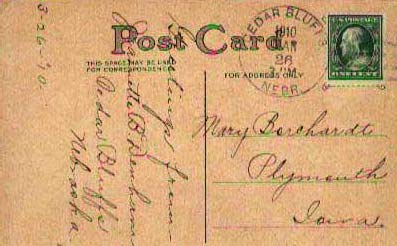 3-26-'10.
Post Card
THIS SPACE MAY BE USED
FOR CORRESPONDENCE
FOR ADDRESS ONLY
CEDAR BLUFF
1910
MAR
26
PM
NEBR.
Greetings from
B. Denham
Cedar Bluffs
Nebraska
Mary Borchardt
Plymouth
Iowa.